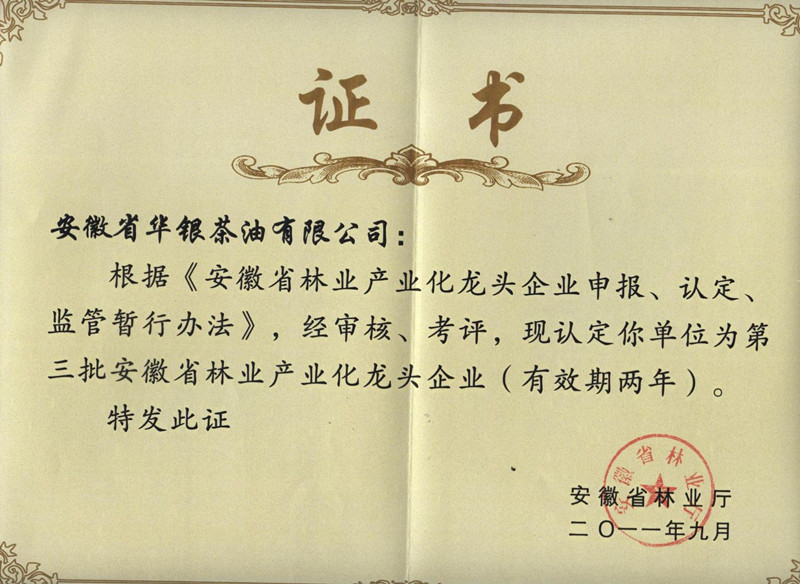 证书
安徽省华银茶油有限公司：
根据《安徽省林业产业化龙头企业申报、认定、
监管暂行办法》，经审核、考评，现认定你单位为第
三批安徽省林业产业化龙头企业（有效期两年）。
特发此证
安徽省林业厅
安徽省林业厅
二〇一一年九月